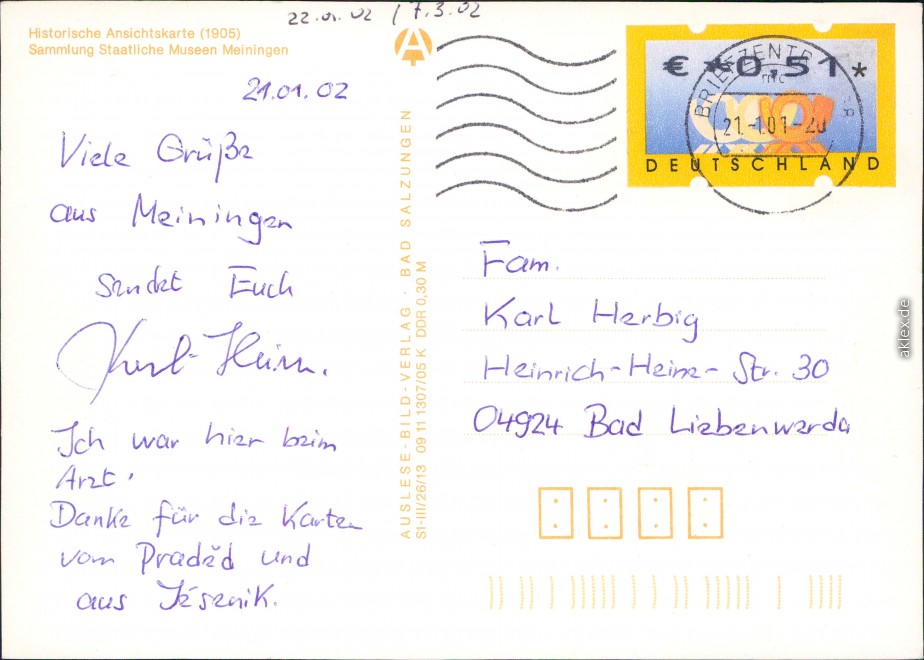 22.01.02 / 7.3.02
Historische Ansichtskarte (1905)
Sammlung Staatliche Museen Meiningen
21.01.02
Viele Grüße
aus Meiningen
sendet Euch
Karl-Heinz.
Ich war hier beim
Arzt.
Danke für die Karten
vom Praděd und
aus Jésenik.
AUSLESE-BILD-VERLAG · BAD SALZUNGEN
SI-III/26/13 09 11 1307/05 K DDR 0,30 M
A
€ *0,51*
DEUTSCHLAND
BRIEFZENTRUM
21.-1.01-20
Fam.
Karl Herbig
Heinrich-Heine-Str. 30
04924 Bad Liebenwerda
aklex.de